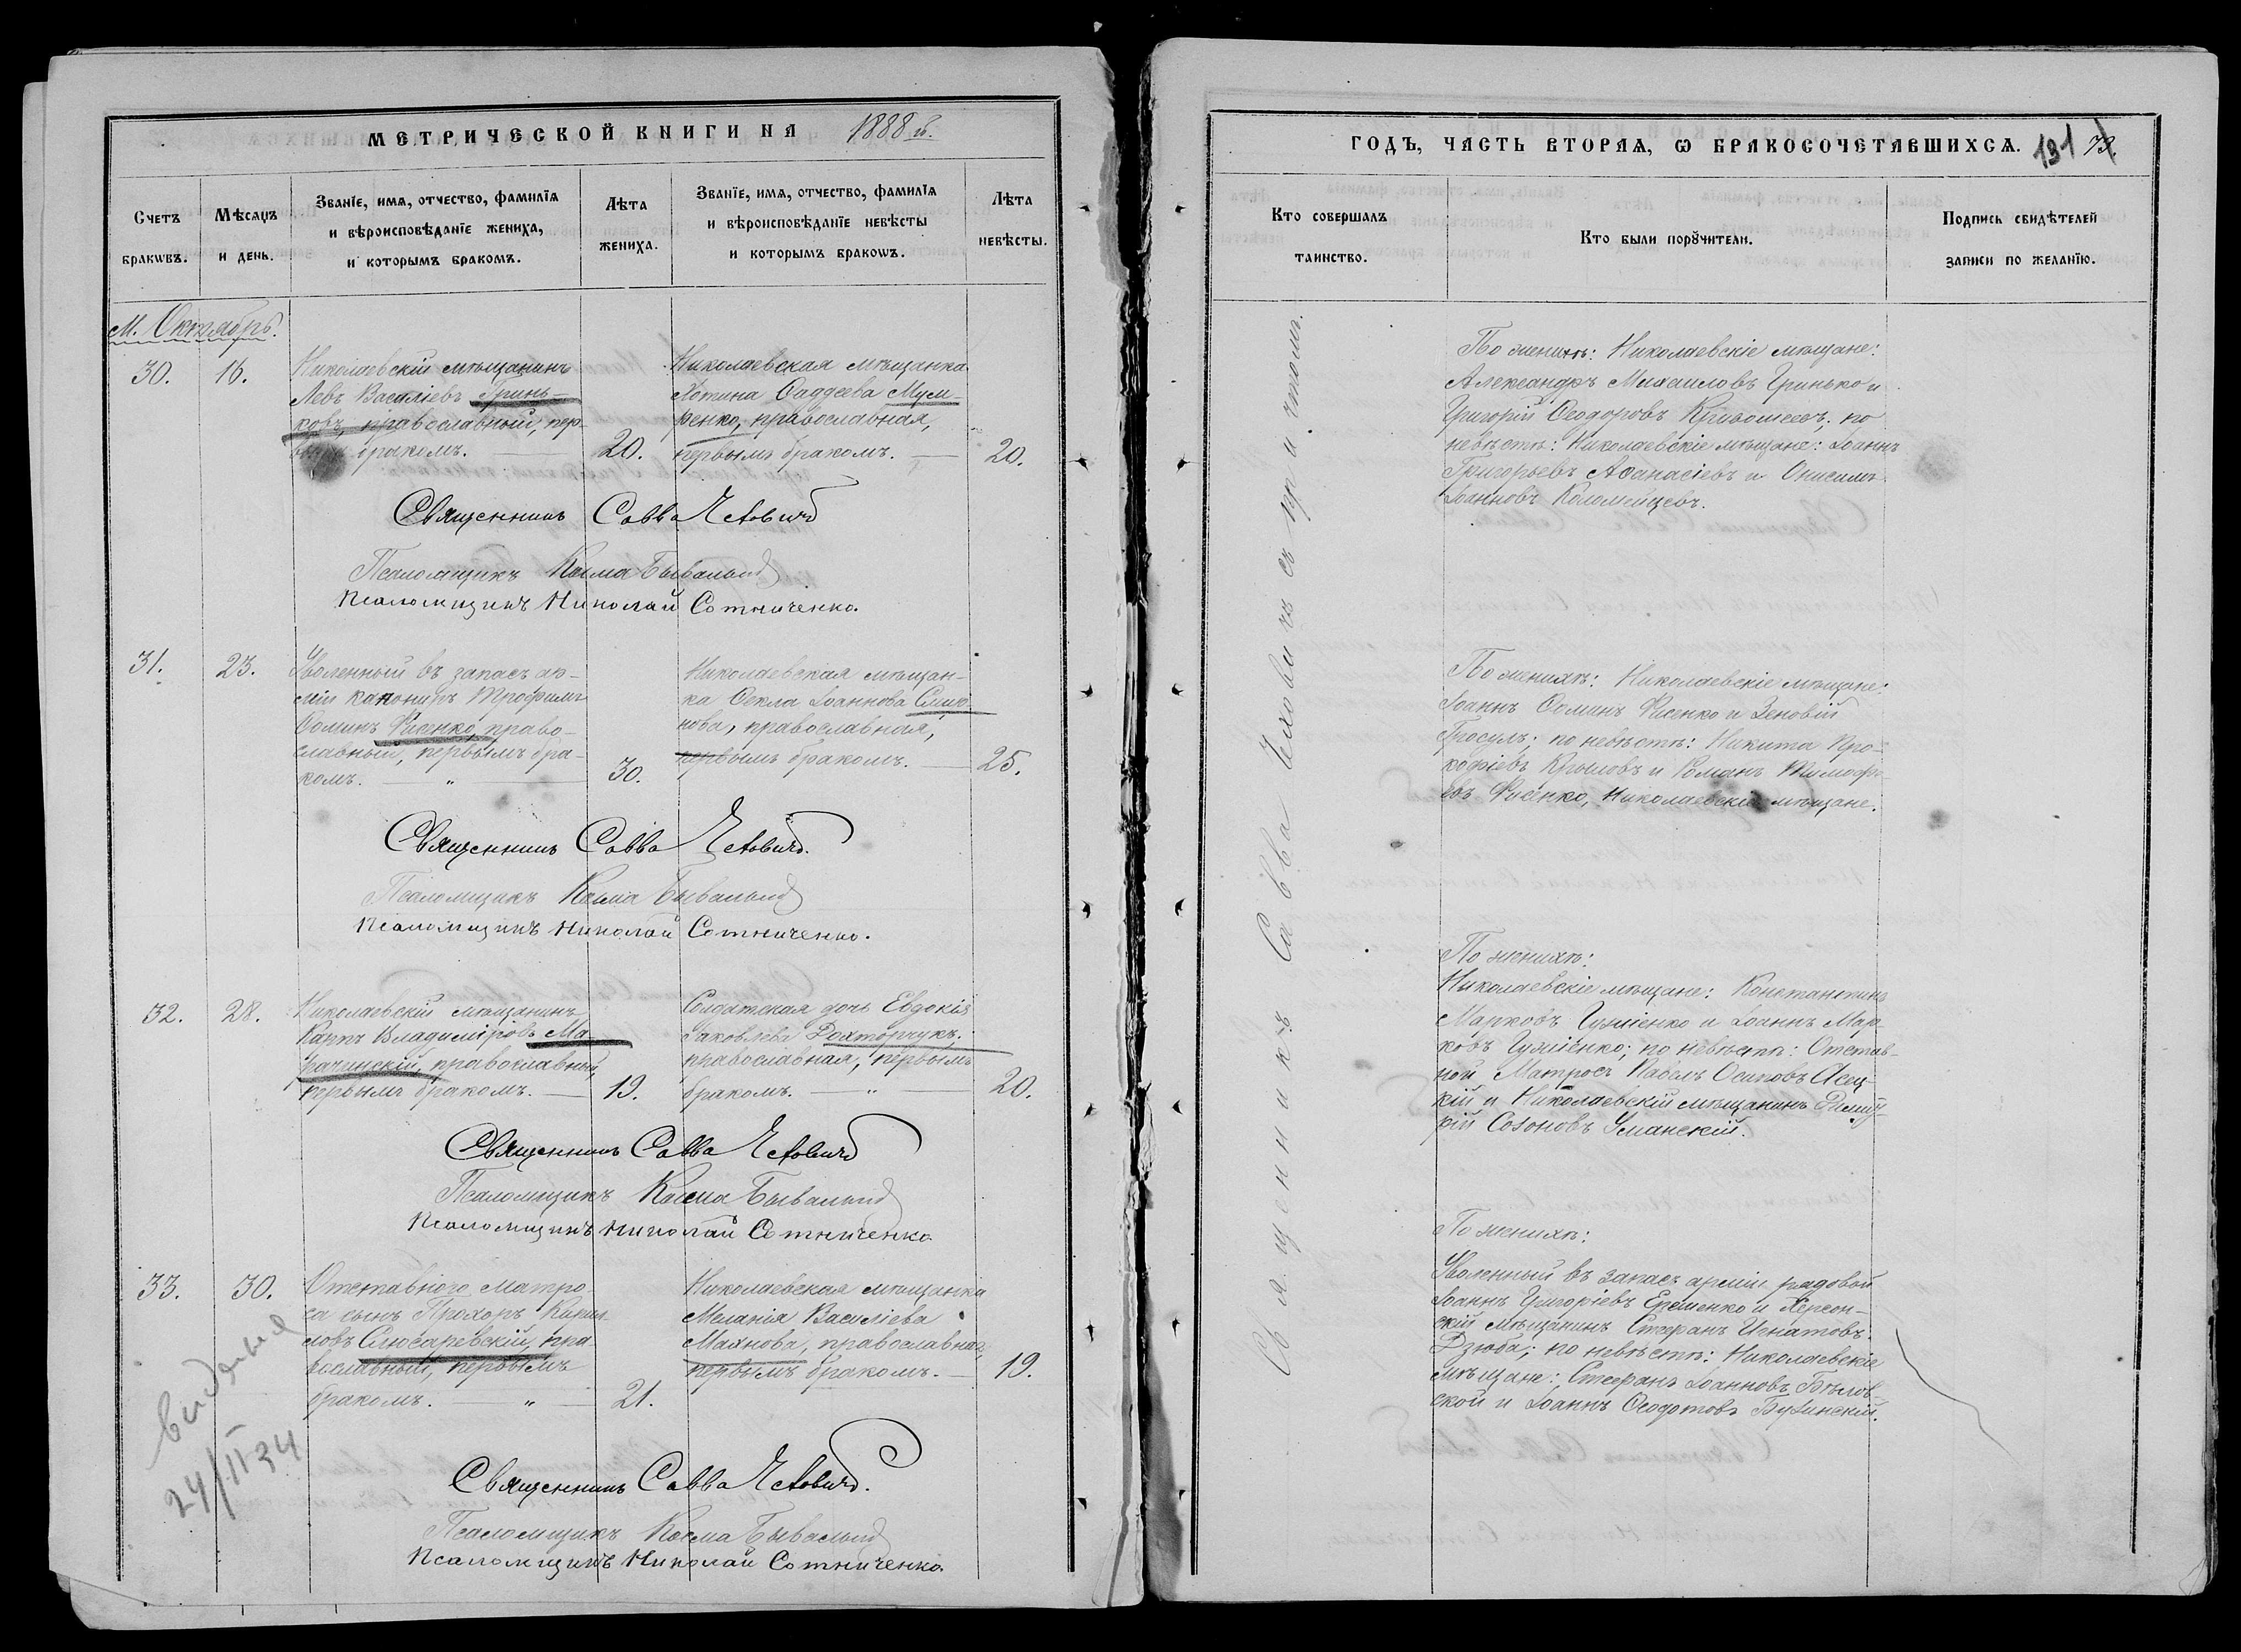 МЕТРИЧЕСКОЙ КНИГИ НА 1888 й.
Счетъ браковъ.
Мѣсяцъ и день.
Званіе, имя, отчество, фамилія
и вѣроисповѣданіе жениха,
и которымъ бракомъ.
Лѣта
жениха.
Званіе, имя, отчество, фамилія
и вѣроисповѣданіе невѣсты
и которымъ бракомъ.
Лѣта
невѣсты.
М. Октябрь.
30. 16.
Николаевскій мѣщанинъ
Левъ Василіевъ Гринь-
ковъ, православный, пер-
бракомъ. 20.
Николаевская мѣщанка
Хотина Ѳаддеева
ренко, православная,
первымъ бракомъ. 20.
Священникъ Савва Чехович
Псаломщикъ Косма Бывалый
Псаломщикъ Николай Сотниченко.
31. 23.
Уволенный въ запасъ ар-
міи канониръ Трофимъ
Ѳоминъ Фисенко, право-
славный, первымъ бра-
комъ. — „ — 30.
Николаевская мѣщан-
ка Ѳекла Іоаннова
нова, православная,
первымъ бракомъ. — 25.
Священникъ Савва Чехович.
Псаломщикъ Косма Бывалый
Псаломщикъ Николай Сотниченко.
32. 28.
Николаевскій мѣщанинъ
Карпъ Владиміровъ Ма-
рачинскій, православный,
первымъ бракомъ. — 19.
Солдатская дочь Евдокія
Яковлева Дохторчукъ.
православная, первымъ
бракомъ. — „ — 20.
Священникъ Савва Чехович
Псаломщикъ Косма Бывалый
Псаломщикъ Николай Сотниченко.
33. 30.
Отставного Матро-
са сынъ Прохоръ Кирил-
ловъ Слюсаревскій, пра-
вославный, первымъ
бракомъ. — „ — 21.
Николаевская мѣщанка
Меланія Василіева
Махнова, православная,
первымъ бракомъ. — 19.
видана
24/II 34
Священникъ Савва Чехович.
Псаломщикъ Косма Бывалый
Псаломщикъ Николай Сотниченко.
ГОДЪ, ЧАСТЬ ВТОРАЯ, Ѡ БРАКОСОЧЕТАВШИХСЯ. 131
Кто совершалъ
таинство.
Кто были порꙋчители.
Подпись свидѣтелей
записи по желанію.
Священникъ Савва Чеховичъ съ причтомъ.
По женихѣ: Николаевскіе мѣщане:
Александръ Михаиловъ Гринько и
Григорій Ѳеодоровъ Кривошеевъ; по
невѣстѣ: Николаевскіе мѣщане: Іоаннъ
Григорьевъ Аѳанасіевъ и Онисимъ
Іоанновъ Коломейцевъ.
По женихѣ: Николаевскіе мѣщане:
Іоаннъ Ѳоминъ Фисенко и Зеновій
Гросулъ; по невѣстѣ: Никита Про-
кофіевъ Крыловъ и Романъ Тимофе-
евъ Фисенко, Николаевскіе мѣщане.
По женихѣ:
Николаевскіе мѣщане: Константинъ
Марковъ Гуміенко и Іоаннъ Мар-
ковъ Гуміенко; по невѣстѣ: Отстав-
ной Матросъ Павелъ Осиповъ Ясец-
кій и Николаевскій мѣщанинъ Димит-
рій Созоновъ Уманскій.
По женихѣ:
Уволенный въ запасъ арміи рядовой
Іоаннъ Григоріевъ Еременко и Херсон-
скій мѣщанинъ Стефанъ Игнатовъ
Дзюба; по невѣстѣ: Николаевскіе
мѣщане: Стефанъ Іоанновъ Бѣлов-
ской и Іоаннъ Ѳеодотовъ Бузинскій.